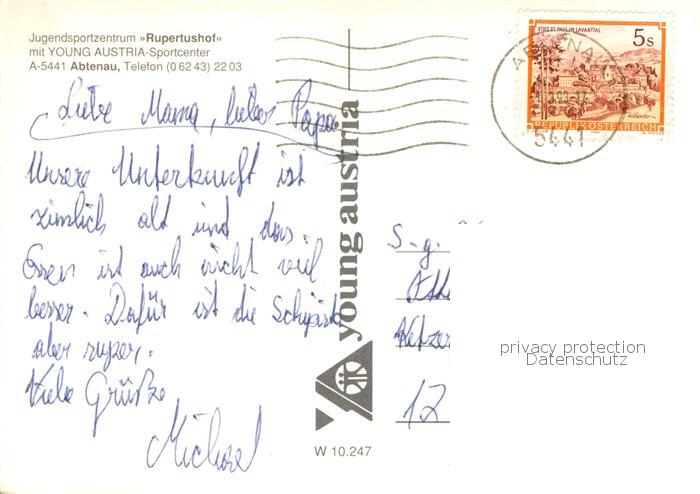 Jugendsportzentrum »Rupertushof«
mit YOUNG AUSTRIA-Sportcenter
A-5441 Abtenau, Telefon (0 62 43) 22 03
Liebe Mama, lieber Papa
Unsere Unterkunft ist
zimlich alt und das
Essen ist auch nicht viel
besser. Dafür ist die Schipiste
aber super.
Viele Grüße
Michael
young austria
W 10.247
STIFT ST. PAUL IM LAVANTTAL
5 s
REPUBLIK ÖSTERREICH
ABTENAU
5441
S. g.
Ketzer
12
privacy protection
Datenschutz